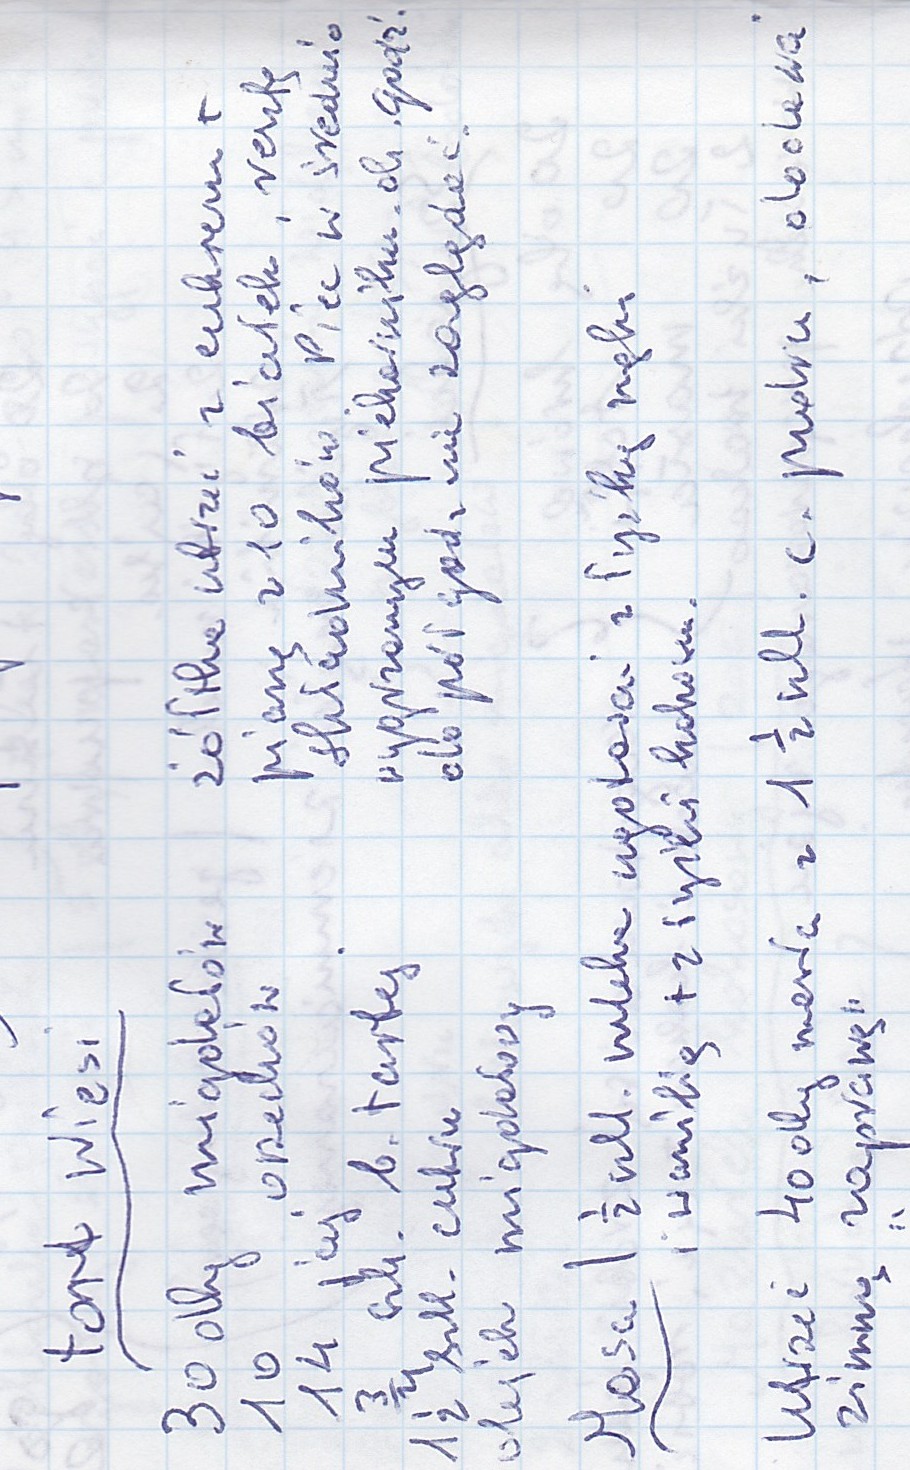 tort Wiesi
30 dkg migdałów
10 orzechów
14 jaj
3/4 szk. b. tartej
1 1/2 szkl. cukru
olejek migdałowy
żółtka utrzeć z cukrem +
pianę z 10 białek, resztę
składników. Piec w średnio
wygrzanym piekarniku. ok. godz.
do pół godz. nie zaglądać.
Masa 1 1/2 szkl. mleka ugotować z łyżką mąki
i wanilią + 2 łyżki kakao.
Utrzeć 40 dkg masła z 1 1/2 szkl. c. pudru, dodawać
zimną „zaprawę"